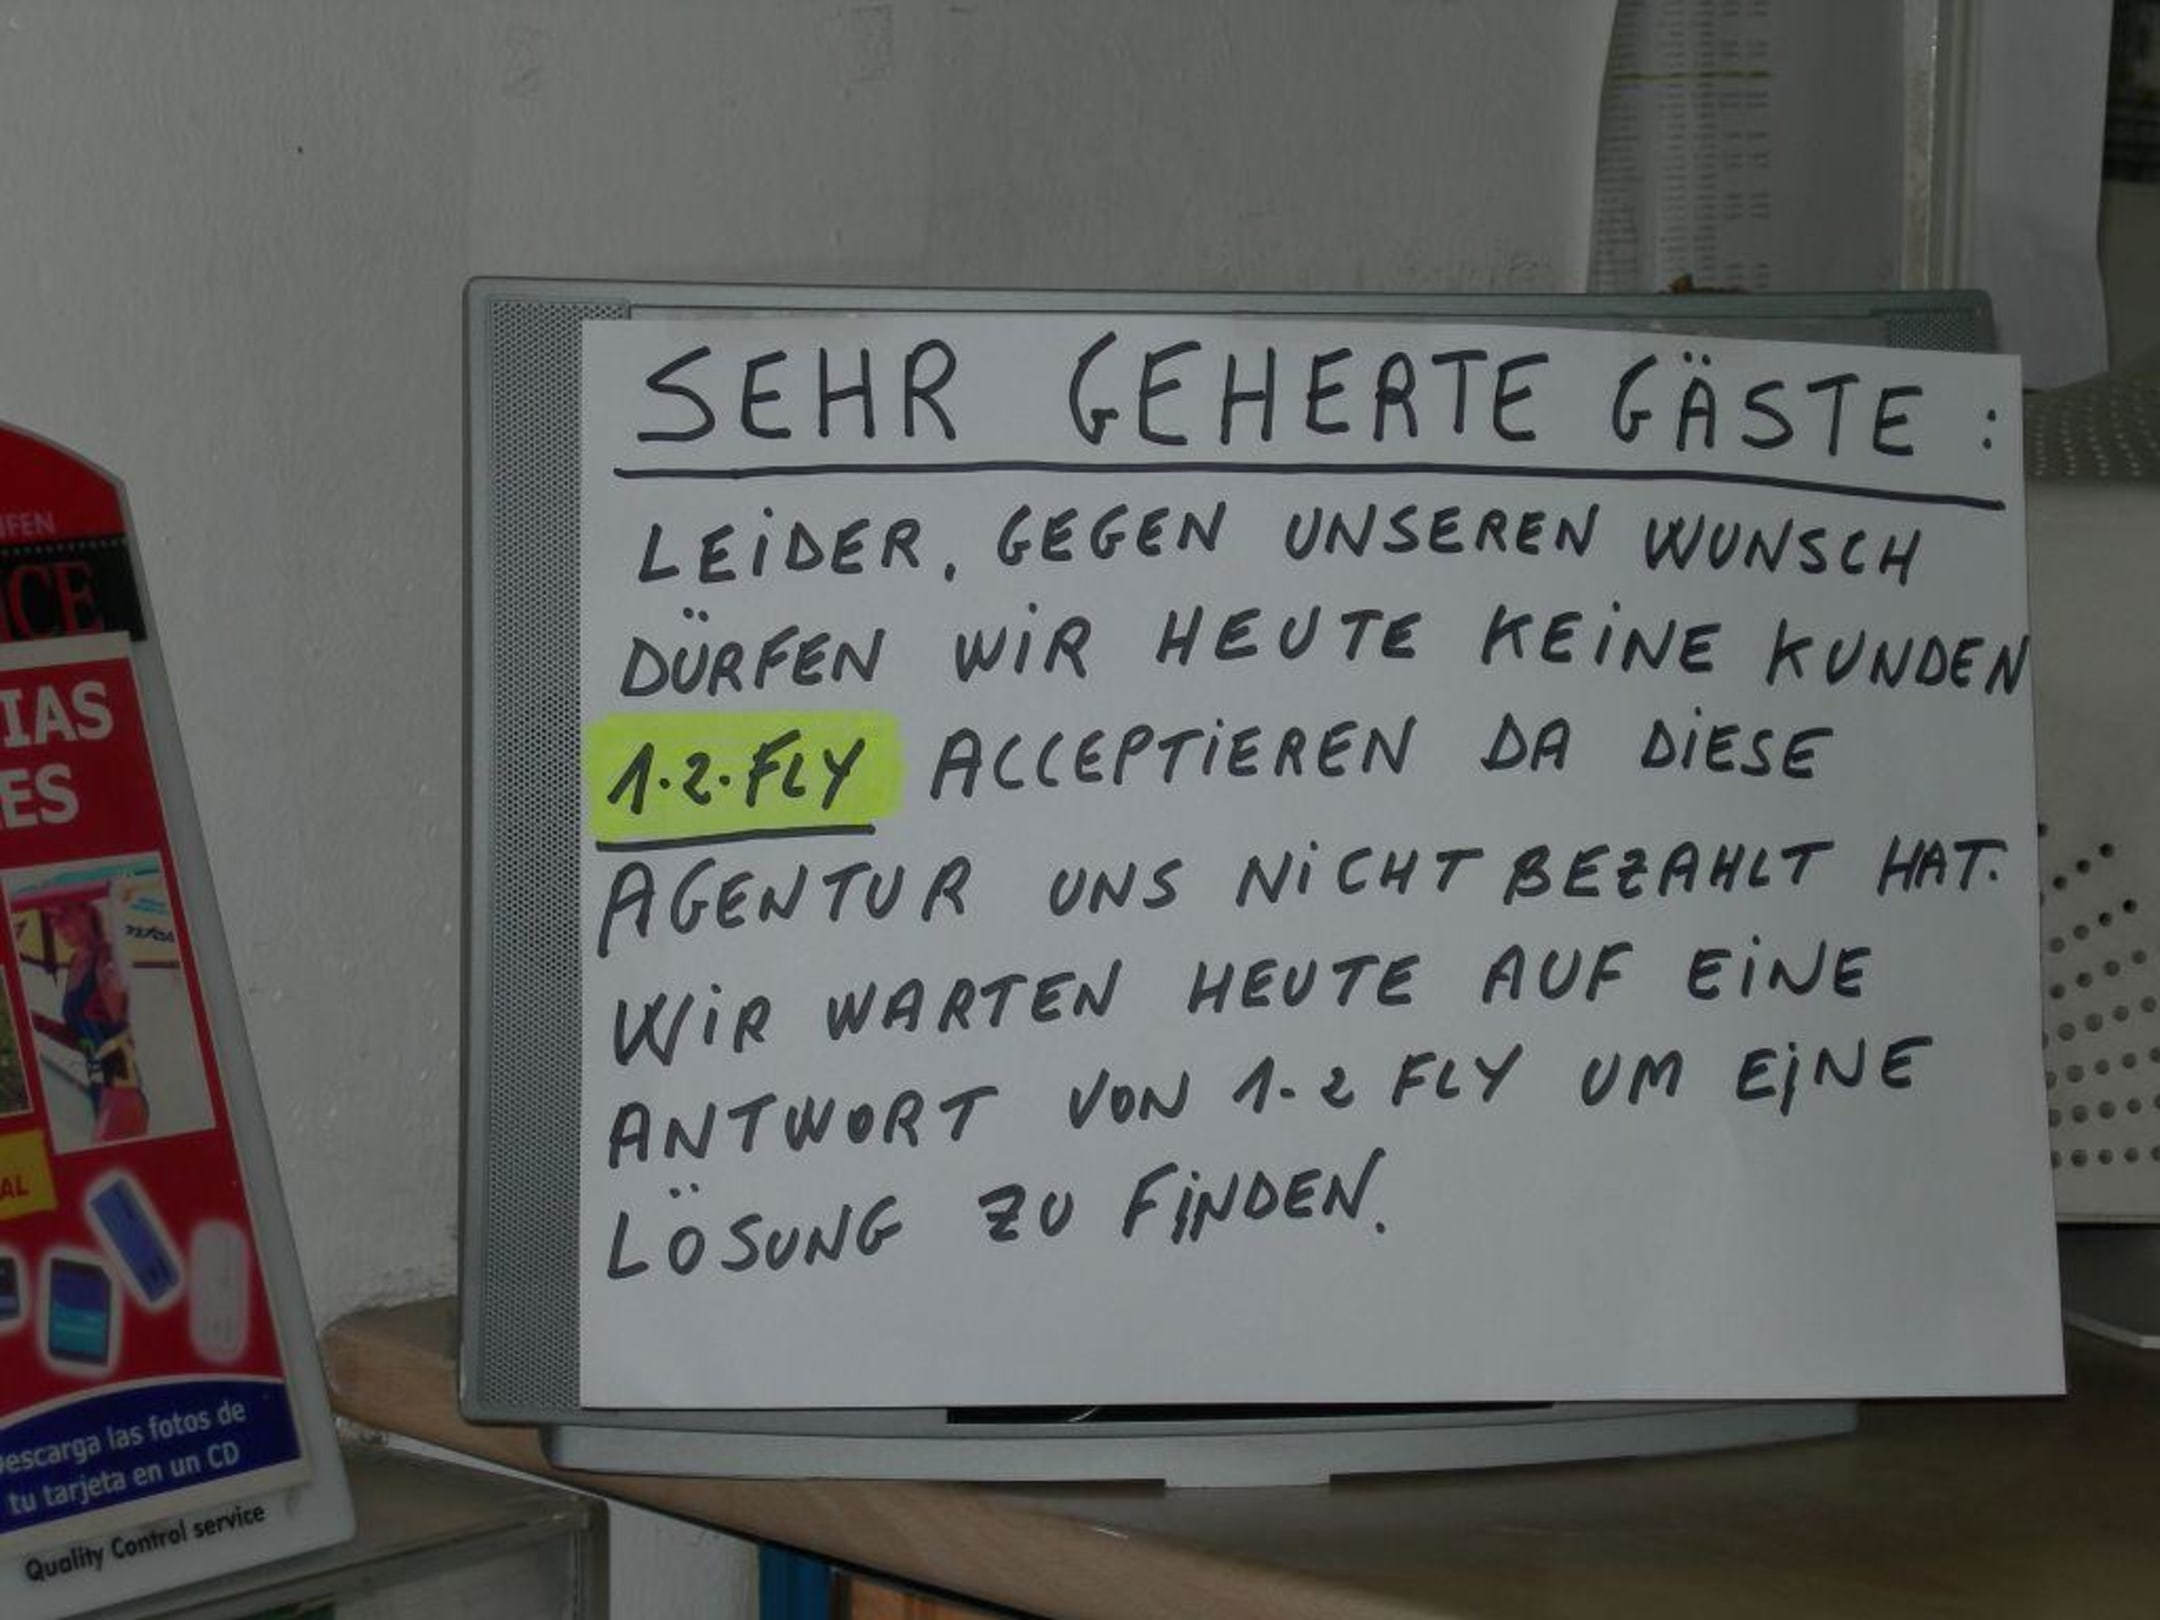 SEHR GEHERTE GÄSTE :
LEiDER, GEGEN UNSEREN WUNSCH
DÜRFEN WiR HEUTE KEiNE KUNDEN
1.2.FLY ACCEPTiEREN DA DiESE
AGENTUR UNS NiCHT BEZAHLT HAT.
WiR WARTEN HEUTE AUF EiNE
ANTWORT VON 1-2 FLY UM EiNE
LÖSUNG ZU FiNDEN.
IFEN
ICE
IAS
ES
AL
escarga las fotos de
tu tarjeta en un CD
Quality Control service